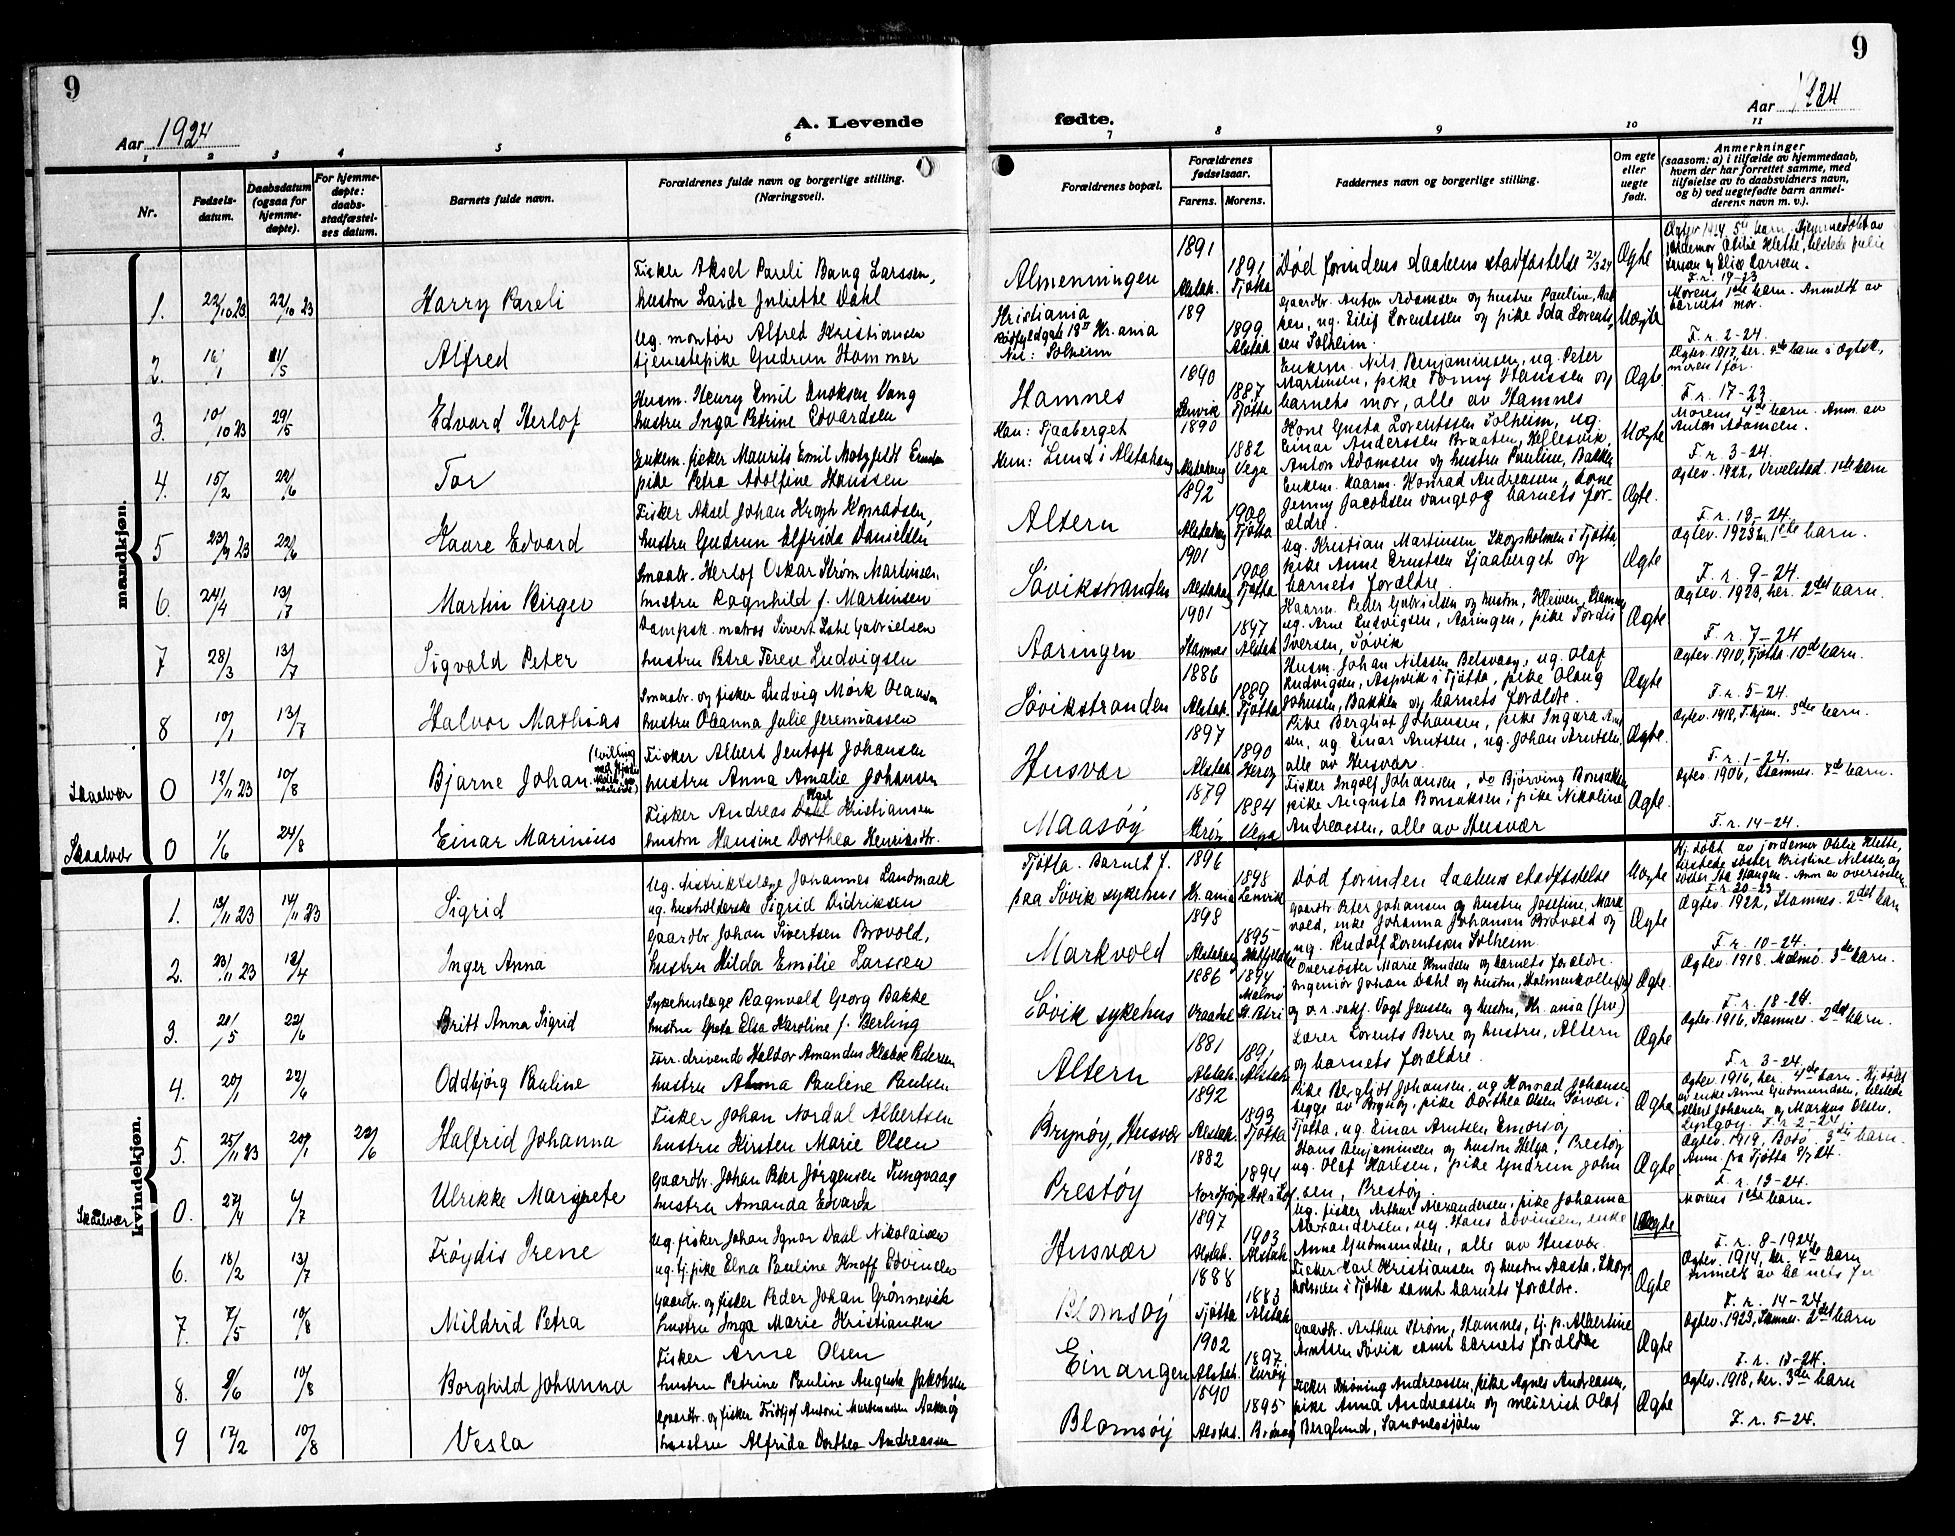 9
Aar 1924
A. Levende
1 2 3 4 5 6
Nr.
Fødsels-
datum.
Daabsdatum
(ogsaa for
hjemme-
døpte).
For hjemme-
døpte:
daabs-
stadfæstel-
ses datum.
Barnets fulde navn.
Forældrenes fulde navn og borgerlige stilling.
(Næringsvei).
mandkjøn.
1. 22/10 23 22/10 23 Harry Pareli
Fisker Aksel Pareli Bang Larssen,
hustru Laide Juliette Dahl
2. 21/5 Alfred
Ug. montør Alfred Kristiansen
tjenestepike Gudrun Hammer
3. 10/10 23 29/5 Edvard Herlof
Husm. Henry Emil Enoksen Vang
hustru Inga Petrine Edvardsen
4. 15/2 22/6 Tor
Enkem. fisker Maurits Emil Motzfeldt
pike Petra Adolfine Hanssen
5 23/9 23 22/6 Kaare Edvard
Fisker Aksel Johan Krogh Konradsen,
hustru Gudrun Elfrida Danielsen
6. 24/4 13/7 Martin Birger
Smaabr. Herlof Oskar Strøm Martinsen,
hustru Ragnhild f. Martinsen
7 28/3 13/7 Sigvald Peter
Dampsk. matros Sivert Gabrielsen
hustru Petra Terese Ludvigsen
8 10/1 13/7 Halvor Mathias
Smaabr. og fisker Ludvig Mørk Olausen
hustru Oleanna Julie Jeremiassen
Skaalvær 0 12/11 23 10/8 Bjarne Johan
(tvilling
Fisker Albert Jentoft Johansen
hustru Anna Amalie Johansen
Skaalvær 0 1/6 24/8 Einar Marinius
Fisker Andreas Dahl Kristiansen
hustru Hansine Dorthea Henriksdtr.
kvindekjøn.
1. 13/11 23 14/11 23 Sigrid
Ug. distriktslæge Johannes Landmark
ug. husholderske Sigrid Didriksen
2. 23/11 23 12/4 Inger Anna
Gaardbr. Johan Sivertsen Brovold,
hustru Hilda Emilie Larssen
3. 20/5 22/6 Britt Anna Sigrid
Sykehuslæge Ragnvald Georg Bakke
hustru Greta Elsa Karoline f. Berling
4. 20/1 22/6 Oddbjørg Pauline
Forr. drivende Haldor Amandus Pedersen
hustru Anna Pauline Paulsen
5. 25/11 23 20/1 22/6 Halfrid Johanna
Fisker Johan Nordal Albertsen
hustru Kirsten Marie Olsen
Skaalvær 0. 27/4 6/7 Ulrikke Margrete
Gaardbr. Johan Peter Jørgensen Tungvaag
hustru Amanda Edvarda
6. 18/2 13/7 Frøydis Irene
Ug. fisker Johan Ignor Daal Nikolaisen
ug. tj. pike Elna Pauline Knoff Edvinsen
7. 7/5 10/8 Mildrid Petra
Gaardbr. og fisker Peder Johan Grønnevik
hustru Inga Marie Kristiansen
8. 9/6 10/8 Borghild Johanna
Fisker Arne Olsen
hustru Petrine Pauline Augusta Jakobsen
9 12/2 10/8 Vesla
Gaardbr. og fisker Fridtjof Antoni Martinussen
hustru Alfrida Dorthea Andreassen
9
Aar 1924
fødte.
7 8 9 10 11
Forældrenes bopæl.
Forældrenes
fødselsaar.
Farens. Morens.
Faddernes navn og borgerlige stilling.
Om egte
eller
uegte
født.
Anmerkninger
(saasom: a) i tilfælde av hjemmedaab,
hvem der har forrettet samme, med
tilføielse av to daabsvidners navn,
og b) ved uegtefødte barn anmel-
derens navn m. v.).
Almenningen 1891 Alstah. 1891 Tjøtta
Død forinden daabens stadfæstelse
Ægte
F. r. 19-23
Kristiania
Kr. ania
Nu: Solheim
189 1899 Alstah.
Gaardbr. Anton Adamsen og hustru Pauline, Bak-
ken, ug. Eilif Lorentssen og pike Ida Lorents-
sen Solheim.
Uægte
Morens 1ste barn. Anmeldt av
barnets mor.
F. r. 2-24.
Hamnes 1890 Lenvik 1887 Tjøtta
Enkem. Nils Benjaminsen, ug. Peter
Martinsen, pike Fanny Hanssen og
barnets mor, alle av Hamnes
Ægte
F. r. 17-23.
Han: Sjaaberget
Hun: Lund i Alstahaug
1890 Alstahaug 1882 Vega
Kone Gusta Lorentssen Solheim, ug.
Einar Anderssen Braaten, Hellesvik,
Anton Adamsen og hustru Pauline, Bakken
Uægte
Morens 4de barn. Anm. av
Anton Adamsen.
F. r. 3-24.
Altern 1892 Alstahaug 1900 Tjøtta
Enkem. kaarm. Konrad Andreasen, kone
Jenny Jacobsen Vange og barnets for-
ældre.
Ægte.
Ægtev. 1922, Vevelstad. 1ste barn
F. r. 18-24.
Søvikstranden 1901 Alstahaug 1900 Tjøtta
Ug. Kristian Martinsen Skogsholmen i Tjøtta,
pike Anne Ernstsen Sjaaberget og
barnets forældre.
Ægte
Ægtev. 1923 her. 1ste barn.
F. r. 9-24.
Aaringen 1901 Stamnes 1897 Alstah.
Kaarm. Peder Gabrielsen og hustru, Kleiven, Stamnes
ug. Arne Ludvigsen, Aaringen, pike Tordis
Iversen, Søvik
Ægte
Ægtev. 1923, her. 2det barn.
F. r. 7-24
Søvikstranden 1886 Alstah. 1889 Tjøtta
Husm. Johan Nilssen Belsvaag, ug. Olaf
Ludvigsen, Aspvik i Tjøtta, pike Olaug
Johnsen, Bakken og barnets forældre.
Ægte
Ægtev. 1910, Tjøtta. 10de barn.
F. r. 5-24.
Husvær 1897 Alstah. 1890 Herøy
Pike Bergliot Johansen, pike Ingara Arnt-
sen, ug. Einar Arntsen, ug. Johan Arntsen,
alle av Husvær.
Ægte.
F. r. 1-24.
Maasøy 1879 Herøy 1884 Vega
Fisker Ingolf Johansen, do Bjørving Bonsaksen
pike Augusta Bonsaksen, pike Nikoline
Andreassen, alle av Husvær
Ægte.
Ægtev. 1906, Stamnes. 7de barn.
F. r. 14-24.
Tjøtta. Barnet f.
paa Søvik sykehus
1896 Kr. ania 1898 Lenvik
Død forinden daabens stadfæstelse
Uægte
F. r. 20-23
Markvold 1898 Alstahaug 1895
Gaardbr. Peter Johansen og hustru Josefine, Mark-
vold, enke Johanna Johansen Brovold og
ug. Rudolf Lorentssen Solheim.
Ægte
Ægtev. 1922, Stamnes. 2det barn
F. r. 10-24.
Søvik sykehus 1886 1894 Malmø St. Petri
Oversøster Marie Knudsen og barnets forældre.
Ingeniør Johan Dahl og hustru, Holmenkollen
og o. r. sakf. Vogt Jenssen og hustru, Kr. ania (frv)
Ægte.
Ægtev. 1918. Malmø. 3de barn.
F. r. 18-24.
Altern 1881 Alstah. 1891 Alstah.
Lærer Lorents Berre og hustru, Altern
og barnets forældre.
Ægte
Ægtev. 1916, Stamnes. 2det barn.
F. r. 3-24.
Brynøy, Husvær 1892 Alstah. 1893 Tjøtta
Pike Bergliot Johansen, ug. Konrad Johansen
begge av Brynøy, pike Dorthea Olsen Sørvær i
Tjøtta, ug. Einar Arntsen
Ægte
Ægtev. 1916, her. 4de barn. Hj. døbt
av enke Anne Gudmundsen, tilstede
Albert Johansen og Markus Olsen.
F. r. 2-24.
Prestøy 1882 1894
Hans Benjaminsen og hustru Helga, Prestøy
ug. Olaf Karlsen, pike Gudrun John-
sen, Prestøy.
Ægte
Ægtev. 1919, Bodø. 3de barn.
Anm. fra Tjøtta
F. r. 13-24.
Husvær 1897 Alstah. 1903 Alstah.
Ug. fisker Arthur Alexandersen, pike Johanna
Alexandersen, ug. Hans Edvinsen, enke
Anne Gudmundsen, alle av Husvær
Uægte
Morens 1ste barn.
F. r. 8-1924
Blomsøy 1888 Tjøtta 1883 Alstah.
Fisker Karl Kristiansen og hustru Aasta, Skogs-
holmen i Tjøtta samt barnets forældre.
Ægte
Ægtev. 1914, her. 4de barn
F. r. 14-24.
Einangen 1902 Alstah. 1897
Gaardbr. Arthur Strøm, Hamnes, tj. p. Albertine
Arntsen Søvik samt barnets forældre
Ægte
Ægtev. 1923, Stamnes. 2det barn
F. r. 17-24.
Blomsøy 1890 Alstah. 1895
Fisker Krøning Andreassen, pike Agnes Andreassen,
pike Anna Andreassen og meierist Olaf
Berglund, Sandnessjøen
Ægte
Ægtev. 1918, her. 3de barn
F. r. 5-24.